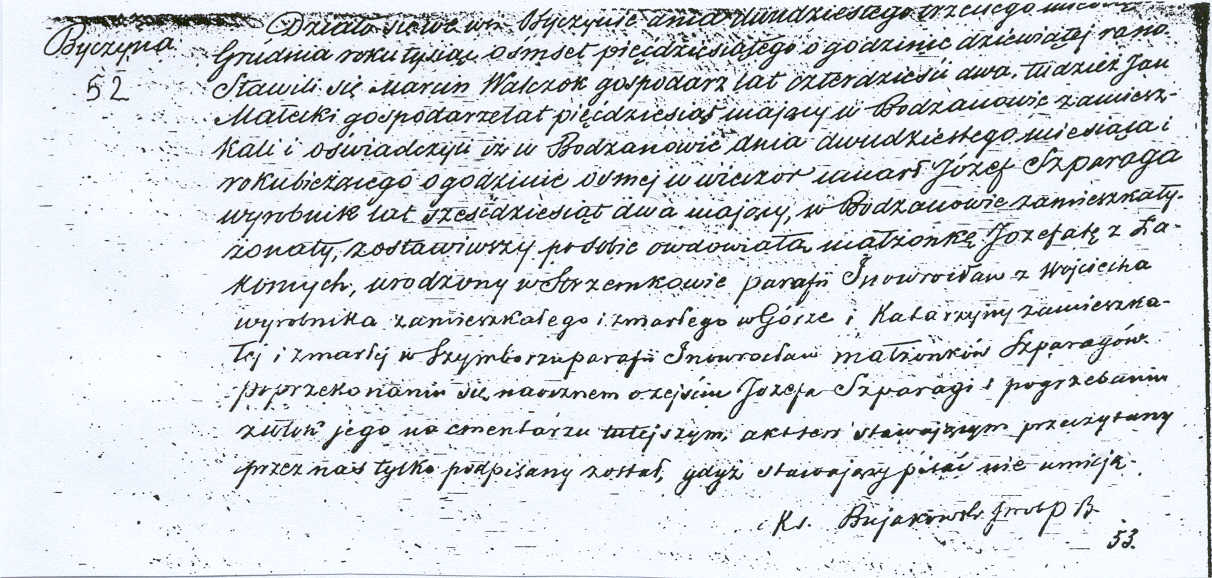 Byczyna
52
Działo się we wsi Byczynie dnia dwudziestego trzeciego miesią
Grudnia roku tysiąc osmset pięćdziesiątego o godzinie dziewiątej rano.
Stawili się Marcin Walczok gospodarz lat czterdzieści dwa, tudzież Jan
Małecki gospodarz lat pięćdziesiąt mający w Bodzanowie zamiesz-
kali i oświadczyli iż w Bodzanowie dnia dwudziestego miesiąca i
roku bieżącego o godzinie osmej w wieczor umarł Józef Szparaga
wyrobnik lat sześćdziesiąt dwa mający, w Bodzanowie zamieszkały.
żonaty, zostawiwszy po sobie owdowiałą małżonkę Jozefatę z Ła-
komych, urodzony w Strzemkowie parafii Inowrocław z Wojciecha
wyrobnika zamieszkałego i zmarłego w Górze i Katarzyny zamieszka-
łej i zmarłej w Szymborzu parafii Inowrocław małżonków Szparagów.
po przekonaniu się naocznem o zejściu Jozefa Szparagi i pogrzebaniu
zwłok jego na cmentarzu tutejszym, akt ten stawającym przeczytany
przez nas tylko podpisany został, gdyż stawający pisać nie umieją.
Ks. Bujakowski Prob P B.
53.